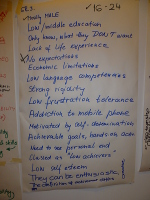 GR.3. ✓16-24
✓mostly MALE
Low/middle education
Only know, what they DON'T want
Lack of life experience
No expectations
Economic limitations
Low language competences
Strong rigidity
Low frustration tolerance
Addiction to mobile phone
Motivated by self-determination
Achievable goals, hands on
Need to see personal and
Classed as "low achievers"
Low self esteem
They can be enthusiastic